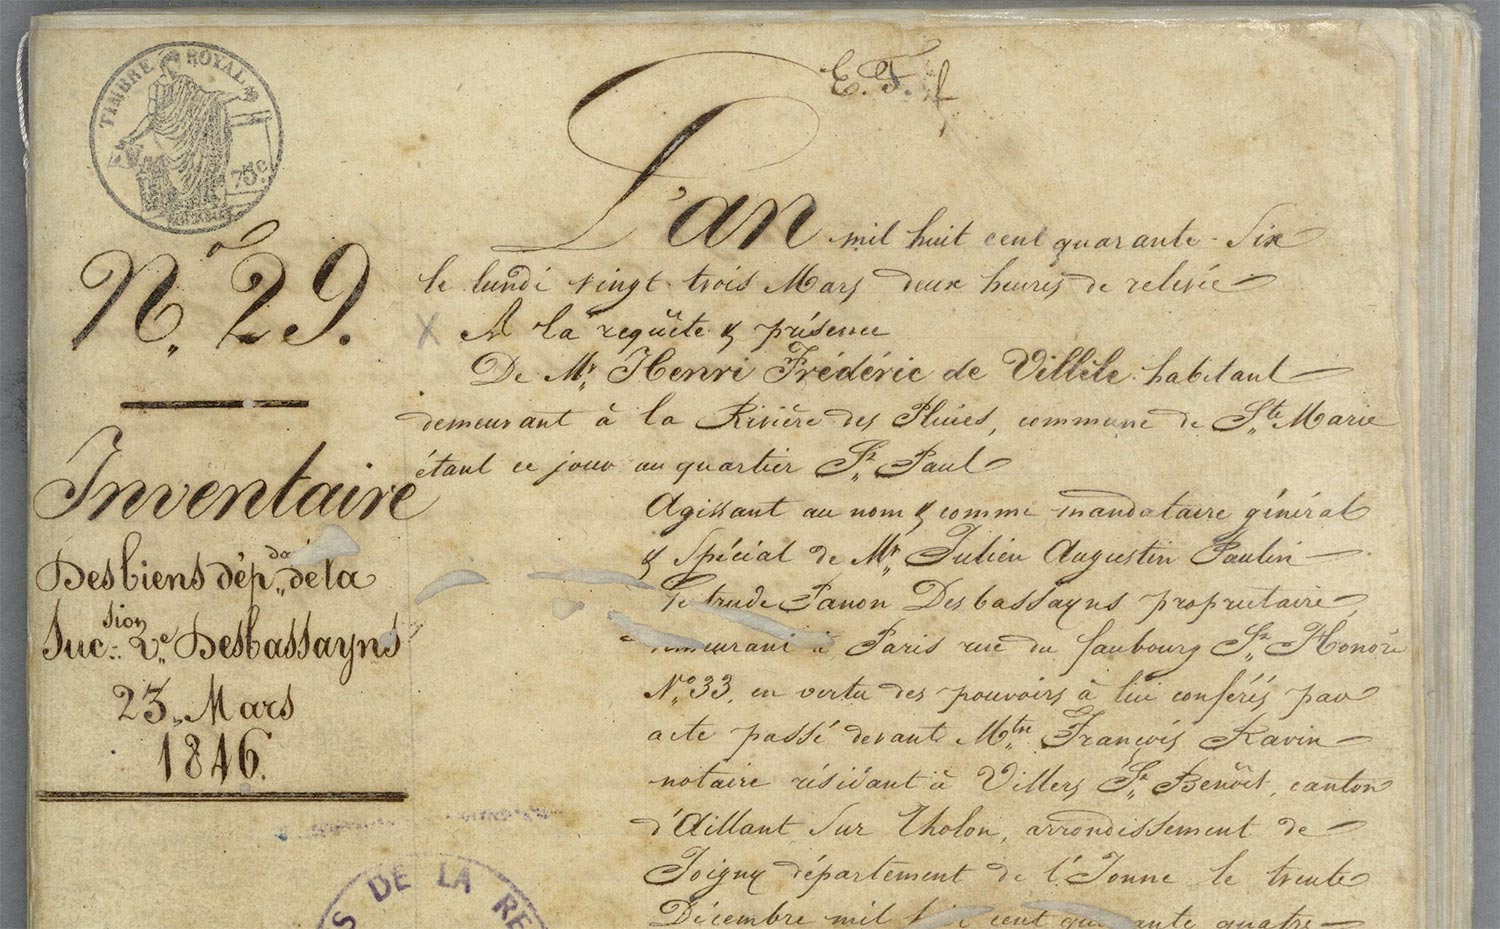 TIMBRE ROYAL
75c.
E. F.
N.º 29.
Inventaire
Des biens dép.da de la
Suc.sion Ve. Desbassayns
23 Mars
1846.
L'an mil huit cent quarante-six
le lundi vingt trois Mars deux heures de relevée
X A la requête & présence
De Mr. Henri Frédéric de Villèle habitant
demeurant à la Rivière des Pluies, commune de Ste. Marie
étant ce jour au quartier St. Paul
Agissant au nom & comme mandataire général
& spécial de Mr. Julien Augustin Paulin
Panon Desbassayns propriétaire,
à Paris rue du faubourg St. Honoré
No. 33, en vertu des pouvoirs à lui conférés par
acte passé devant Mtre. François Ravin
notaire résidant à Villers St. Benoît, canton
d'Aillant sur Tholon, arrondissement de
Joigny département de l'Yonne le trente
Décembre mil cent quarante quatre
S DE LA RE